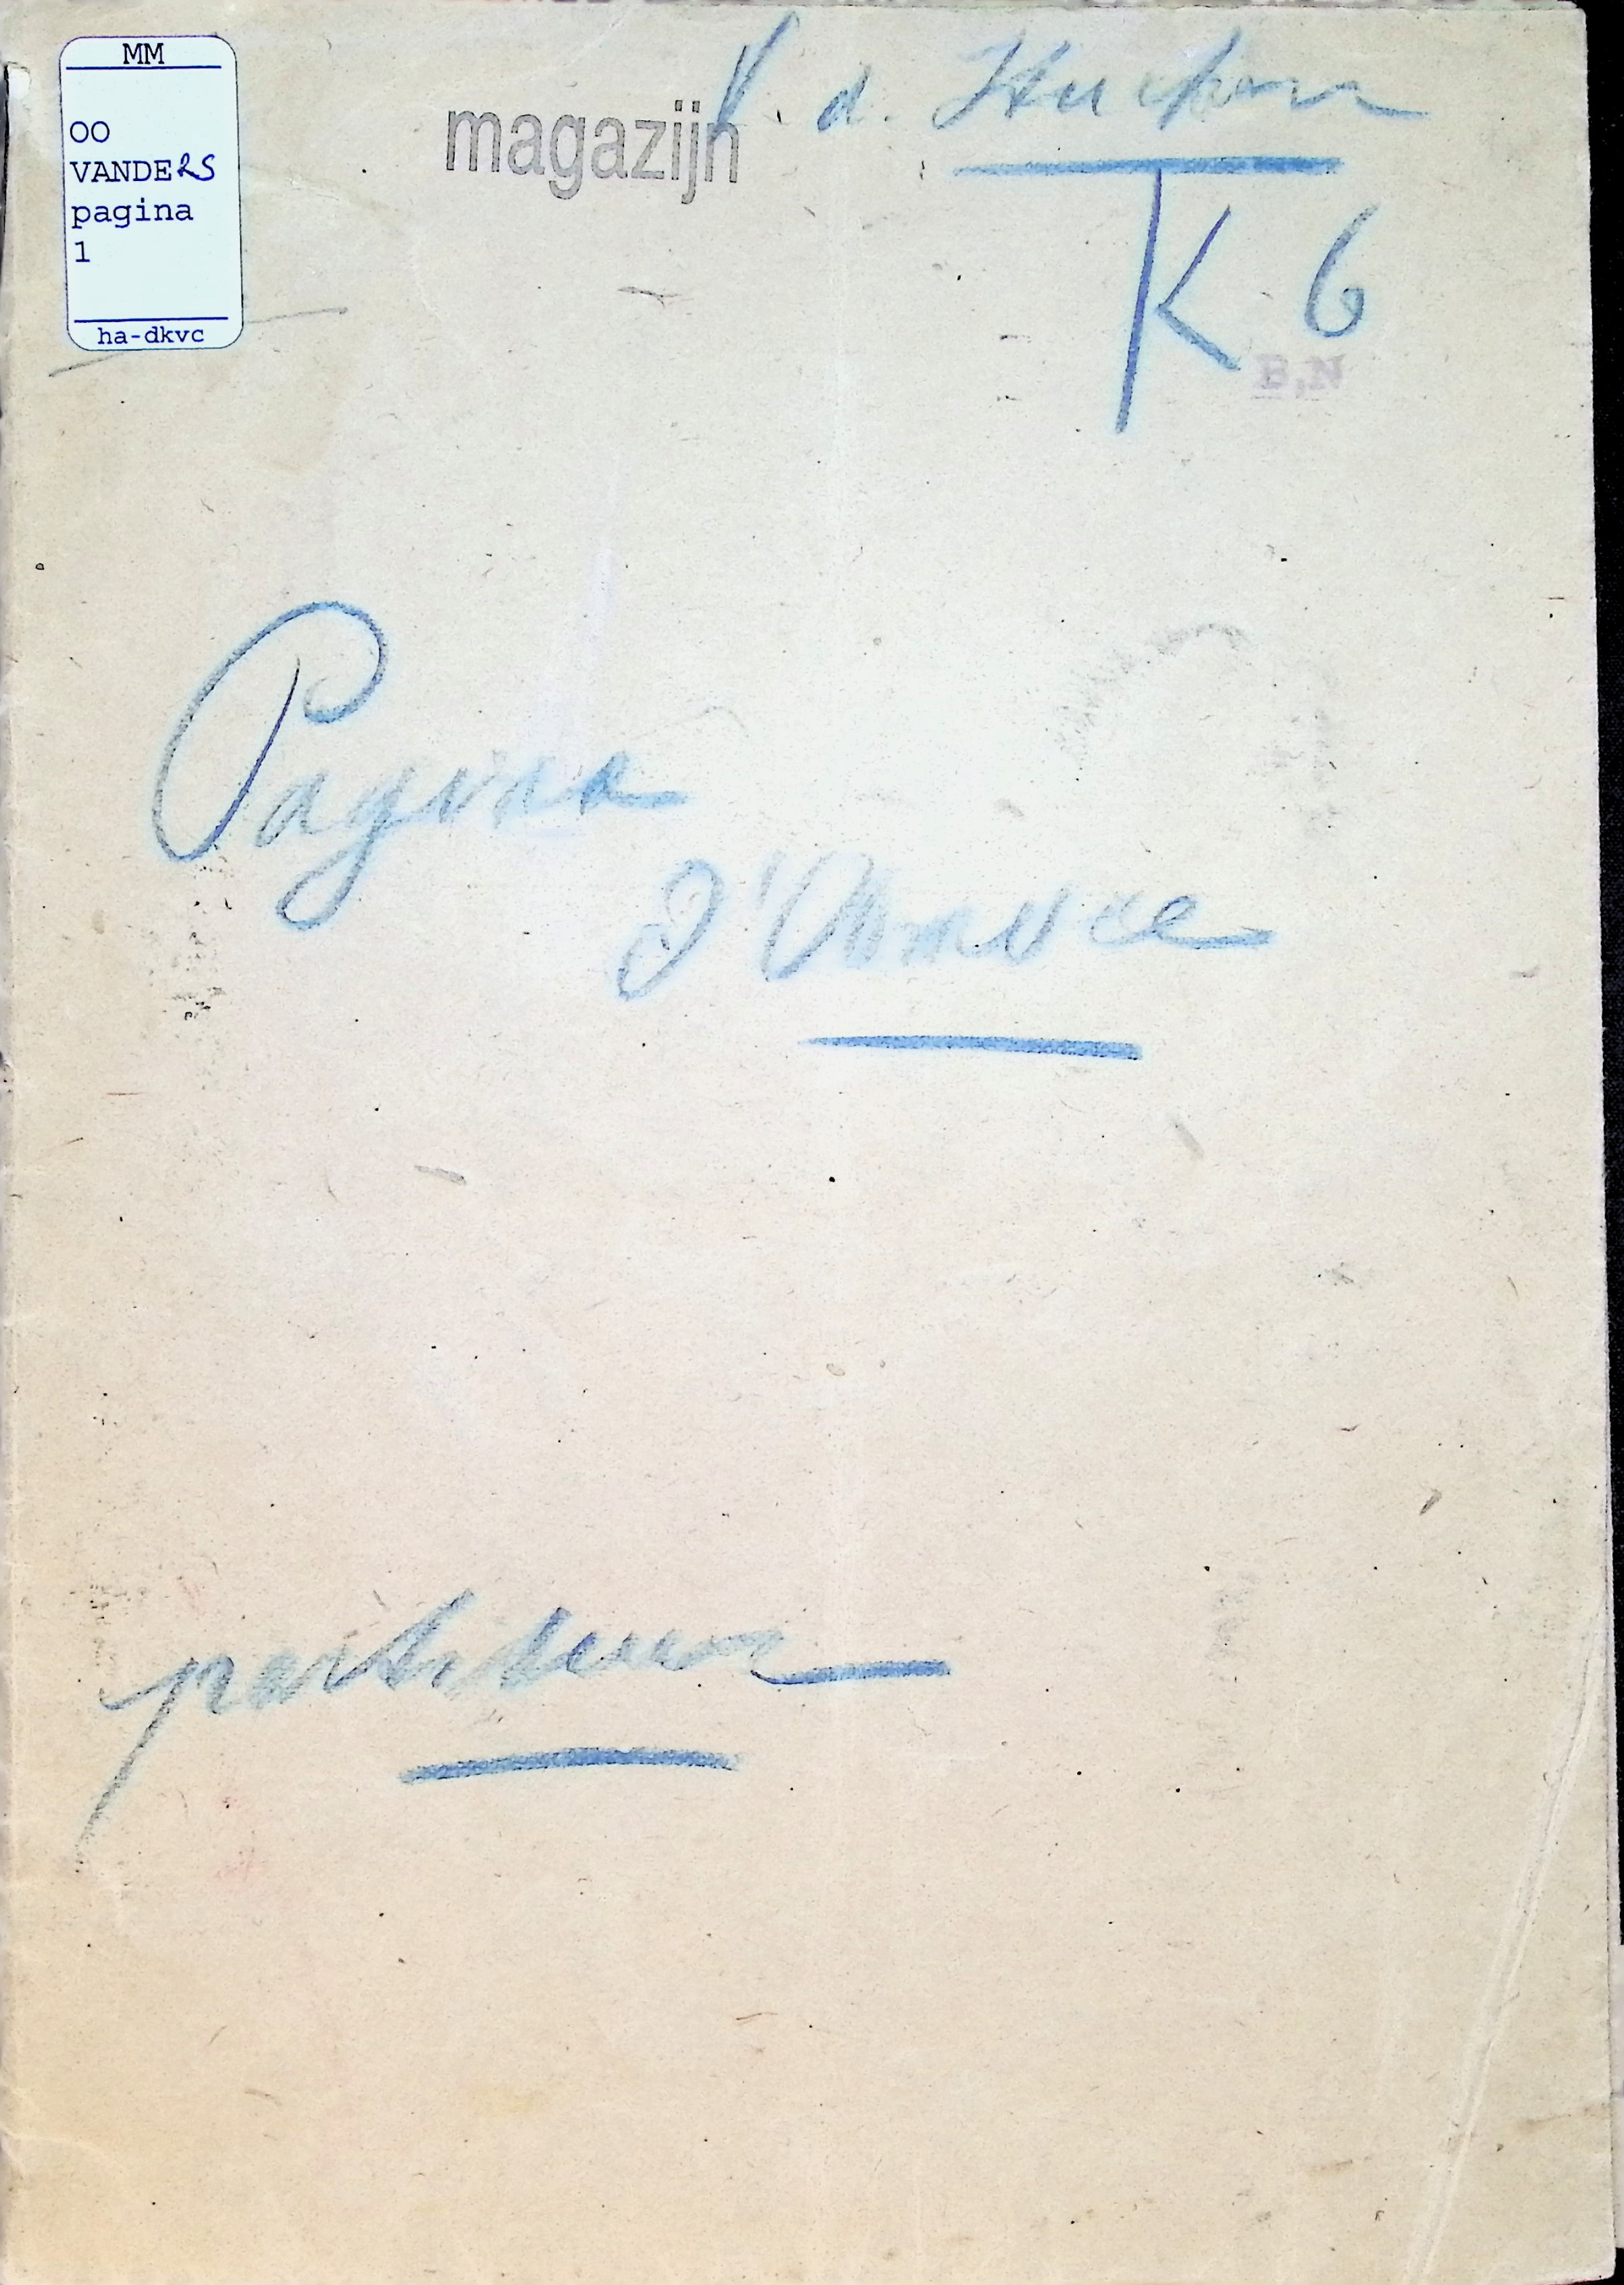 MM
OO
VANDERS
pagina
1
ha-dkvc
magazijn
V. d.
K 6
B.N
Pagina
d'Amore
partituur